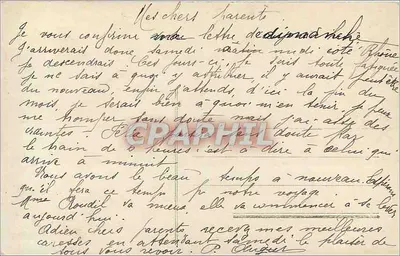 Mes chers parents
Je vous confirme ma lettre de dimanche
J'arriverai donc samedi matin midi côté Rhône
je descendrai. Ces jours-ci, je suis toute fatiguée
je ne sais à quoi y attribuer il y aurait peut être
du nouveau, enfin j'attends, d'ici la fin du
mois, je serais bien à quoi m'en tenir, je peux
me tromper sans doute mais j'ai assez des
sans doute par
le train de heures c'est à dire à celui qui
arrive à minuit
Nous avons le beau temps à nouveau. Espérons
qu'il sera ce temps pr notre voyage
Mme Roudil va mieux elle va commencer à se lever
aujourd'hui.
Adieu chers parents recevez mes meilleures
caresses en attendant samedi le plaisir de
vous revoir. P.
GRAPHIL